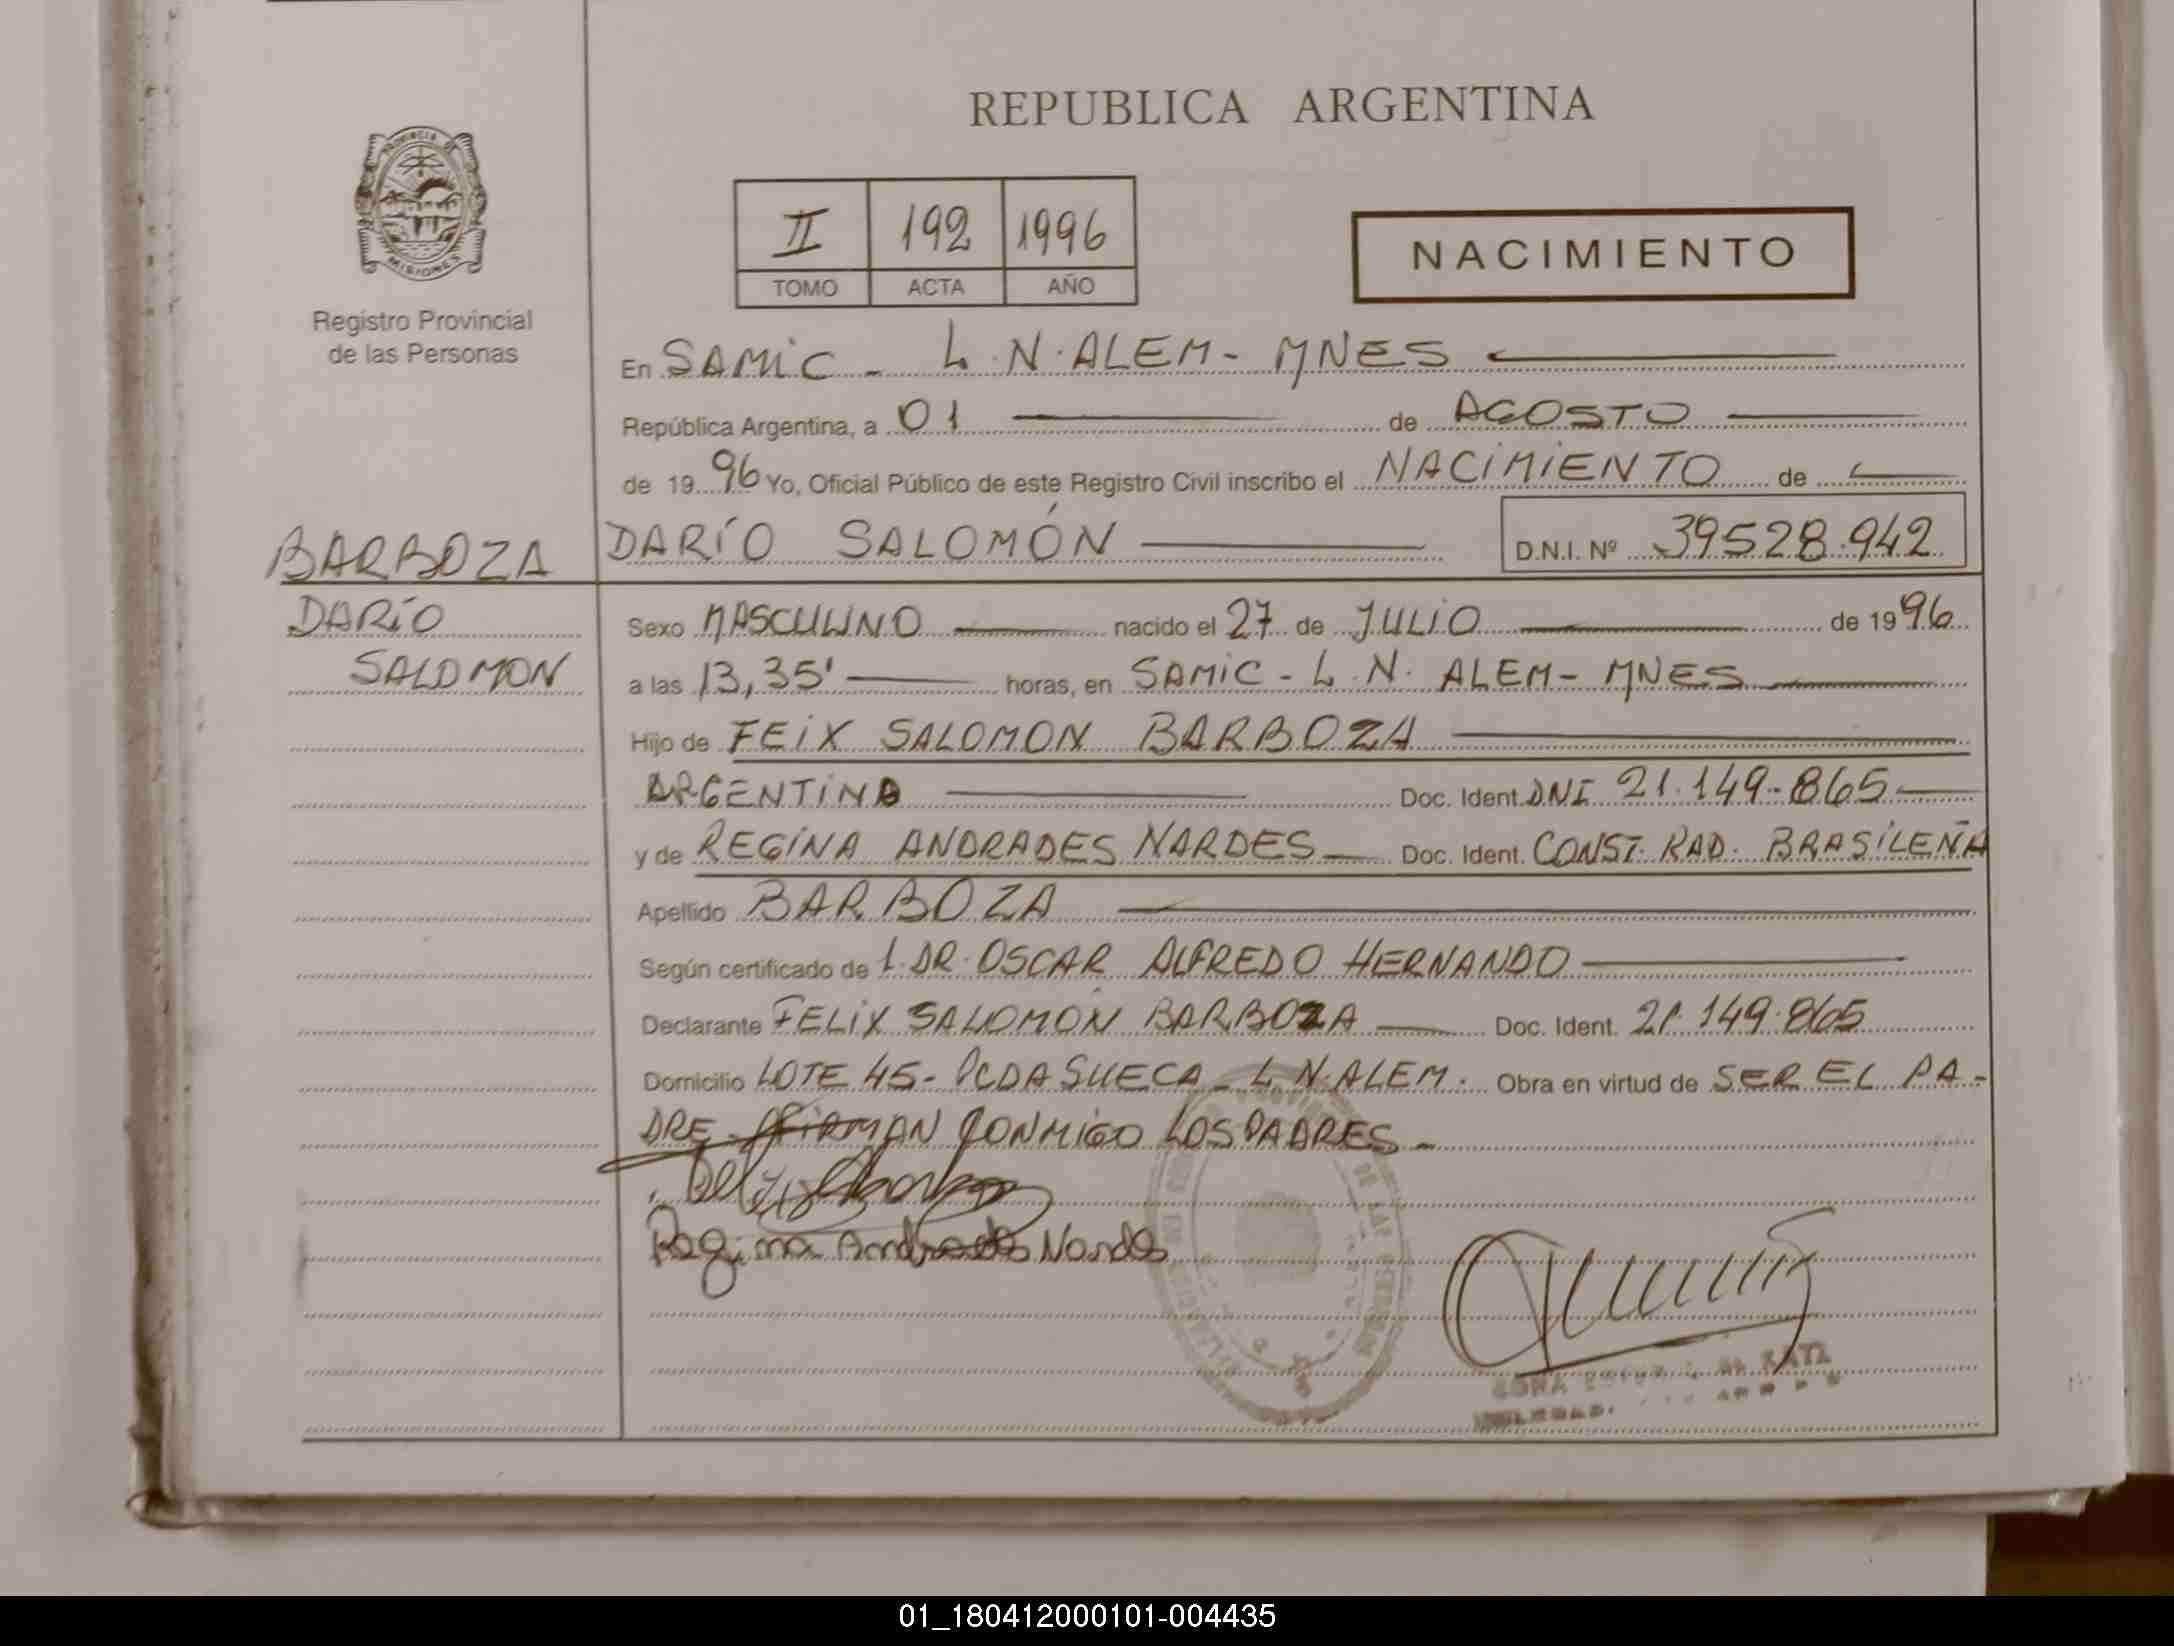 REPUBLICA ARGENTINA
PROVINCIA DE
MISIONES
Registro Provincial
de las Personas
II 192 1996
TOMO ACTA AÑO
NACIMIENTO
En SAMIC - L.N.ALEM- MNES
República Argentina, a 01 de AGOSTO
de 1996 Yo, Oficial Público de este Registro Civil inscribo el NACIMIENTO de
BARBOZA
DARÍO
SALOMON
DARÍO SALOMÓN D.N.I. Nº 39528.942
Sexo MASCULINO nacido el 27 de JULIO de 1996
a las 13,35' horas, en SAMIC - L.N. ALEM- MNES
Hijo de FEIX SALOMON BARBOZA
ARGENTINO Doc. Ident. DNI 21.149.865
y de REGINA ANDRADES NARDES Doc. Ident. CONST. RAD. BRASILEÑA
Apellido BARBOZA
Según certificado de L. DR. OSCAR ALFREDO HERNANDO
Declarante FELIX SALOMÓN BARBOZA Doc. Ident. 21.149.865
Domicilio LOTE 45- PCDA SUECA - L.N.ALEM. Obra en virtud de SER EL PA-
DRE - FIRMAN CONMIGO LOS PADRES -
Regina Andrades Nardes
01_180412000101-004435